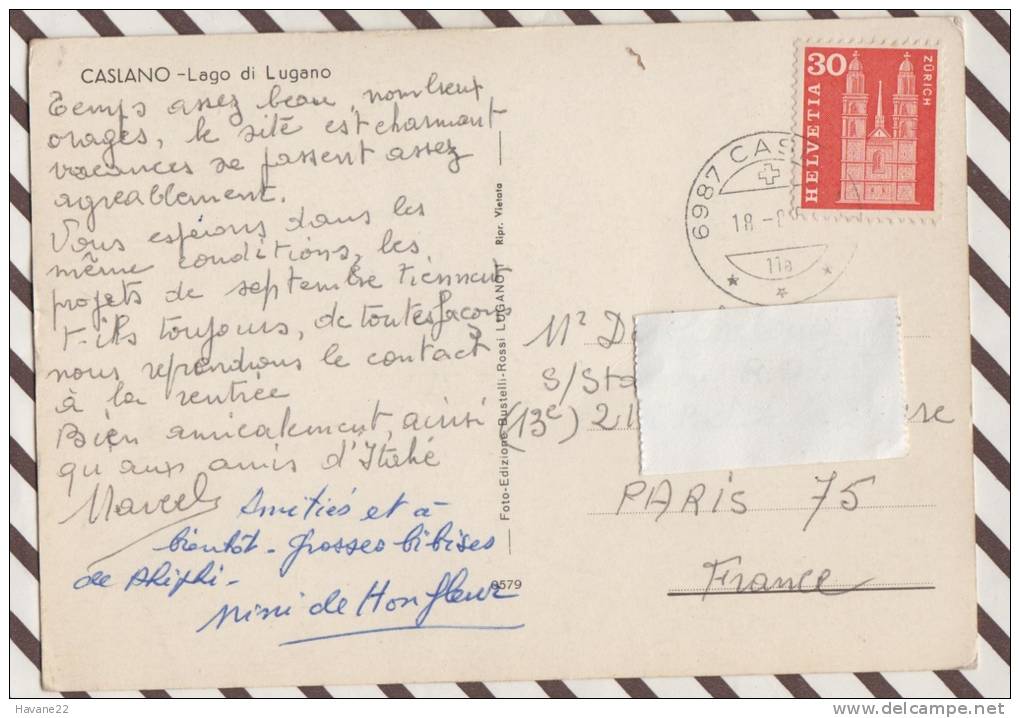 CASLANO - Lago di Lugano
Temps assez beau, nombreux
orages, le site est charmant
vacances se passent assez
agréablement.
Vous espérons dans les
même conditions, les
projets de septembre tiennent
t-ils toujours, de toutes façons
nous reprendrons le contact
à la rentrée
Bien amicalement, ainsi
qu'aux amis d'Italie
Marcel
Amitiés et à
bientôt - grosses bibises
de
Mimi de Honfleur
Foto-Edizione Bustelli-Rossi LUGANO 1 Ripr. Vietata
8579
HELVETIA
30
ZÜRICH
6987 CAS
18 -
11a
S/Sta
(13e) 21
PARIS 75
France
Havane22
www.delcampe.net